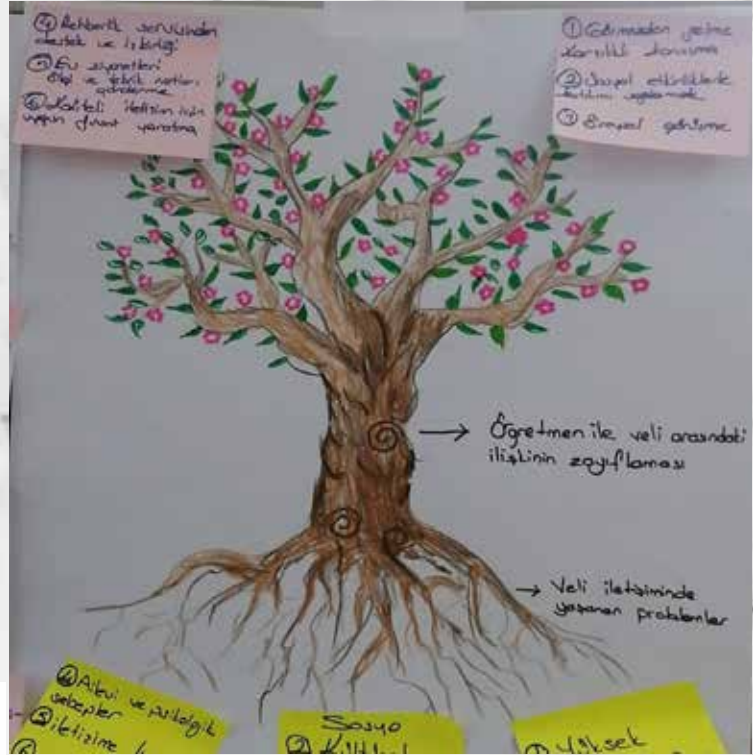 ④ Rehberlik servisinden
destek ve işbirliği
⑤ Ev ziyaretleri
bilgi ve teknik notları
gönderme
⑥ Kaliteli iletişim için
uygun fırsat yaratma
① Görmezden gelme
karşılıklı tanışma
② Sosyal etkinliklerle
katılım sağlamak
③ Bireysel görüşme
Öğretmen ile veli arasındaki
ilişkinin zayıflaması
Veli iletişiminde
yaşanan problemler
④ Ailevi ve psikolojik
sebepler
⑤ iletişime
⑥
Sosyo
② Kültürel
① Yüksek